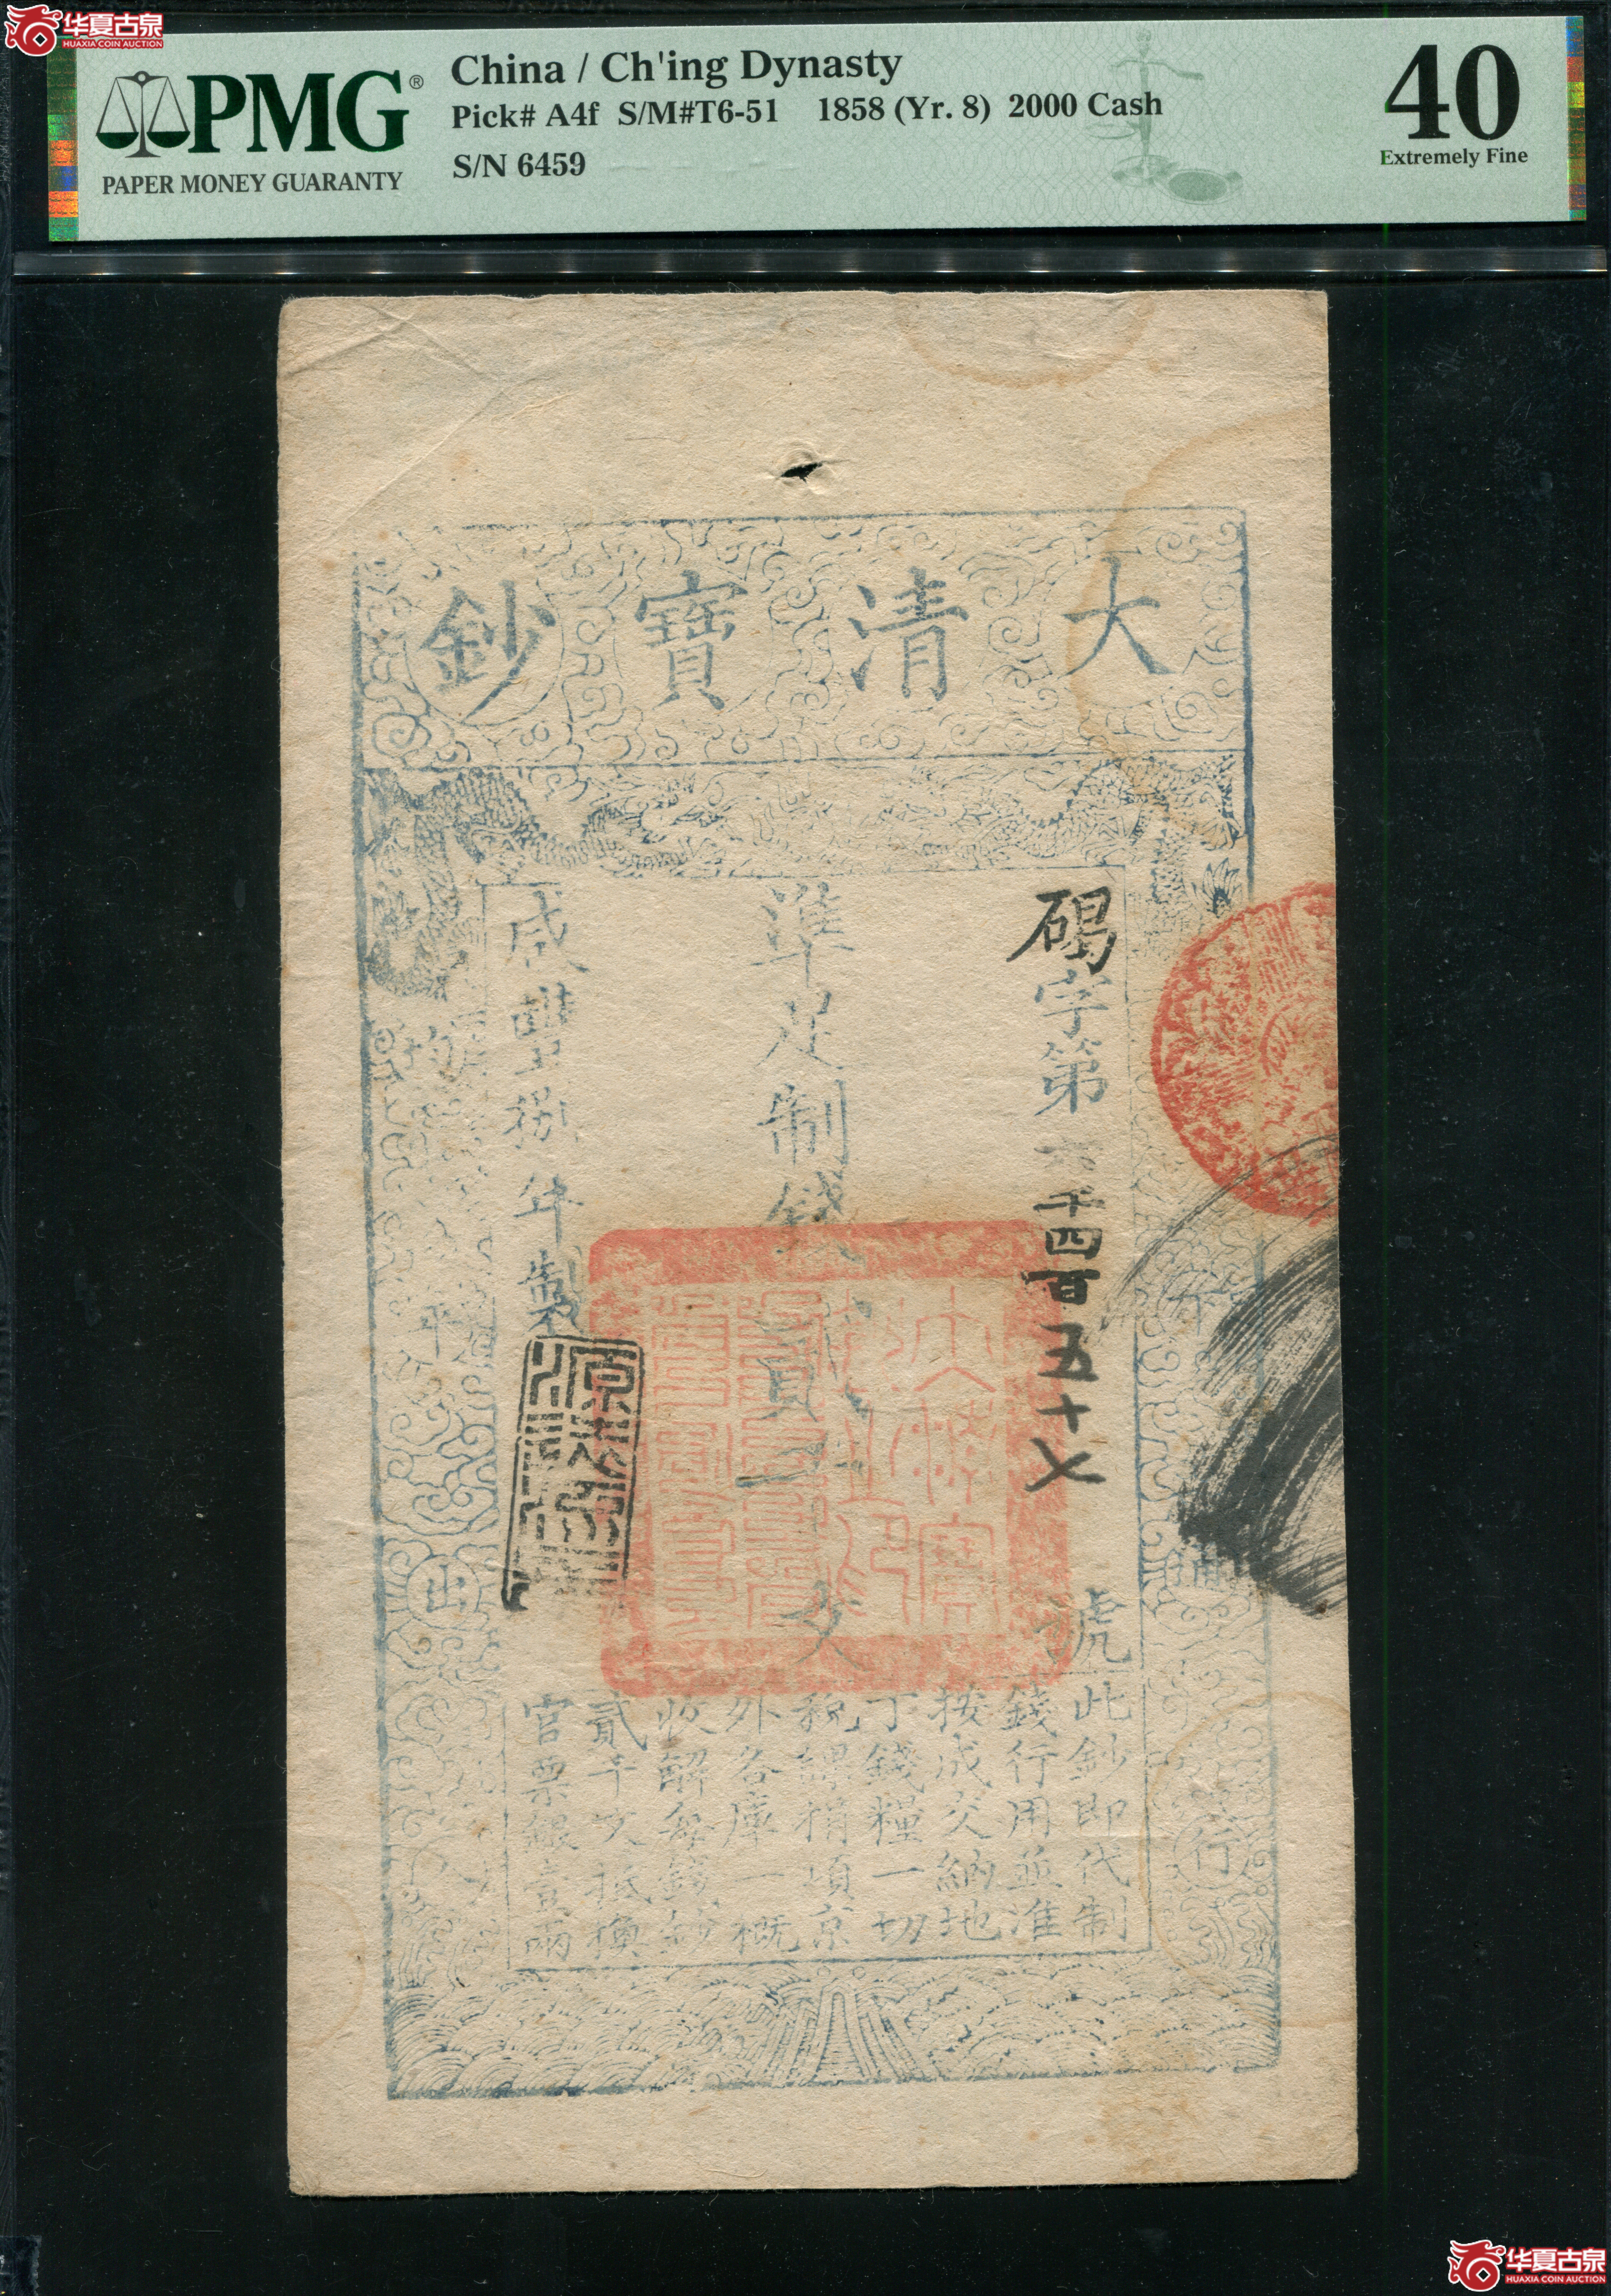 华夏古泉
HUAXIA COIN AUCTION
PMG®
PAPER MONEY GUARANTY
China / Ch'ing Dynasty
Pick# A4f S/M#T6-51 1858 (Yr. 8) 2000 Cash
S/N 6459
40
Extremely Fine
大清寶鈔
下通行
碣字第六千四百五十九號
準足制錢貳千文
咸豐捌年製
均平出入
此鈔即代制
錢行用並准
按成交納地
丁錢糧一切
稅課捐項京
外各庫一概
收解每錢鈔
貳千文抵換
官票銀壹兩
华夏古泉
HUAXIA COIN AUCTION